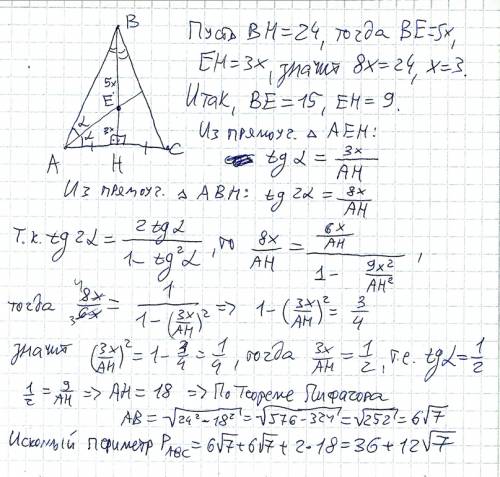 B
5x
E
α
α
3x
A
H
C
Пусть BH=24, тогда BE=5x,
EH=3x, значит 8x=24, x=3.
Итак, BE=15, EH=9.
Из прямоуг. △ AEH:
tg α = 3x/AH
Из прямоуг. △ ABH: tg 2α = 8x/AH
т.к. tg 2α = 2 tg α/(1 - tg²α), то 8x/AH = (6x/AH)/(1 - 9x²/AH²),
тогда 4 8x/3 6x = 1/(1 - (3x/AH)²) => 1 - (3x/AH)² = 3/4
значит (3x/AH)² = 1 - 3/4 = 1/4, тогда 3x/AH = 1/2, т.е. tg α = 1/2
1/2 = 9/AH => AH = 18 => По теореме Пифагора
AB = √(24² - 18²) = √(576 - 324) = √252 = 6√7
Искомый периметр P_ABC = 6√7 + 6√7 + 2·18 = 36 + 12√7